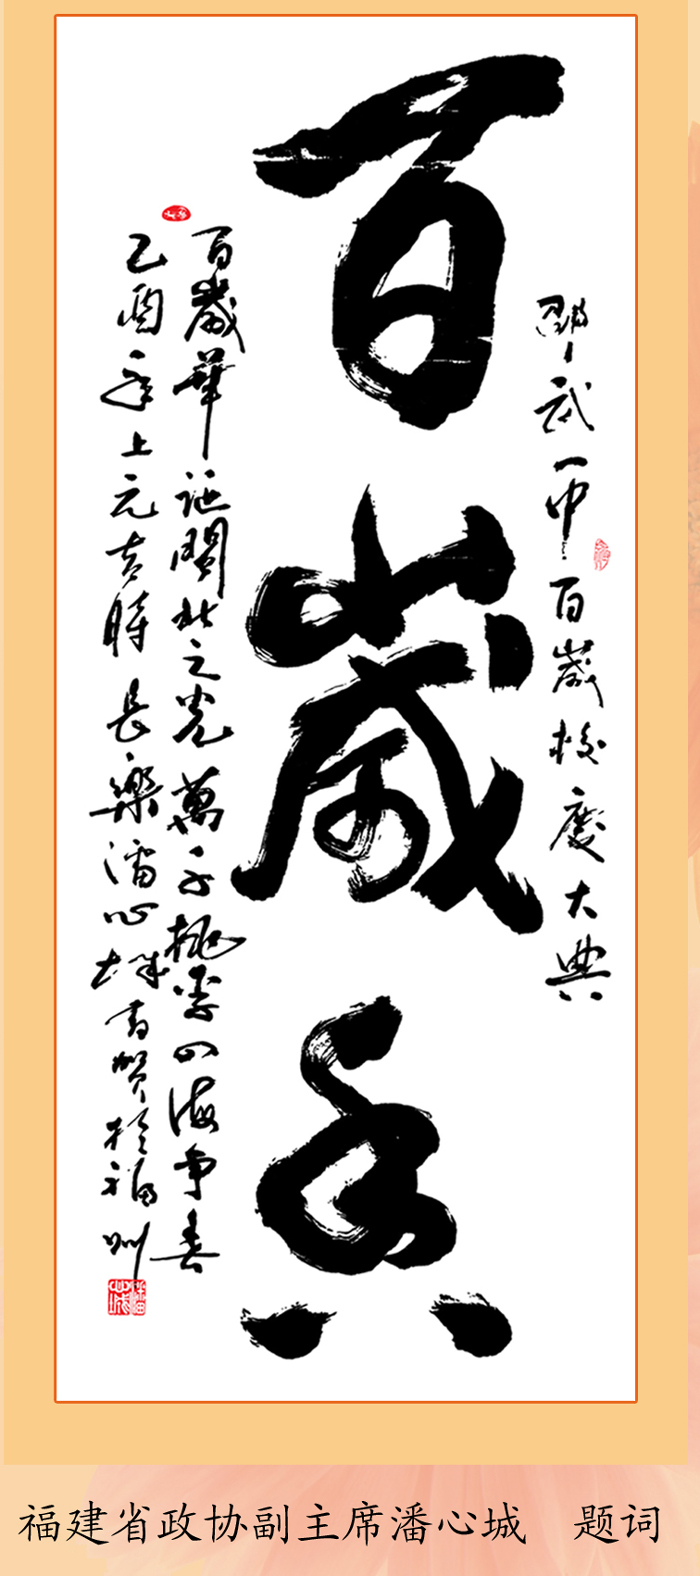 邵武一中百歲校慶大典
百歲
百歲華誕閩北之光萬千桃李四海争春
乙酉年上元吉時長樂潘心城賀於福州
福建省政协副主席潘心城 题词